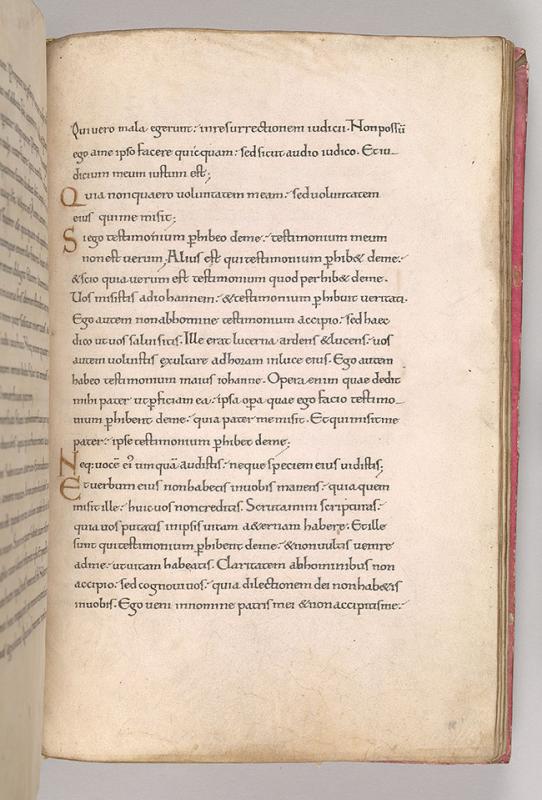 Qui vero mala egerunt: in resurrectionem iudicii. Non possū
ego a me ipso facere quicquam: sed sicut audio iudico. Et iu-
dicium meum iustum est;
Quia non quaero voluntatem meam: sed voluntatem
eius qui me misit;
Si ego testimonium phibeo de me: testimonium meum
non est verum; Alius est qui testimonium phib& de me:
& scio quia verum est testimonium quod perhib& de me.
Vos misistis ad iohannem: & testimonium phibuit veritati.
Ego autem non ab homine testimonium accipio: sed haec
dico ut vos salvi sitis. Ille erat lucerna ardens & lucens: vos
autem voluistis exultare ad horam in luce eius. Ego autem
habeo testimonium maius iohanne. Opera enim quae dedit
mihi pater ut pficiam ea: ipsa opa quae ego facio testimo-
nium phibent de me: quia pater me misit. Et qui misit me
pater: ipse testimonium phibet de me;
Neq: vocē ei' umquā audistis: neque speciem eius vidistis;
Et verbum eius non habetis in vobis manens: quia quem
misit ille: huic vos non creditis. Scrutamini scripturas:
quia vos putatis in ipsis vitam a&ernam habere: Et ille
sunt qui testimonium phibent de me: & non vultis venire
ad me: ut vitam habeatis. Claritatem ab hominibus non
accipio: sed cognovi vos: quia dilectionem dei non hab&is
in vobis. Ego veni in nomine patris mei & non accipitis me: